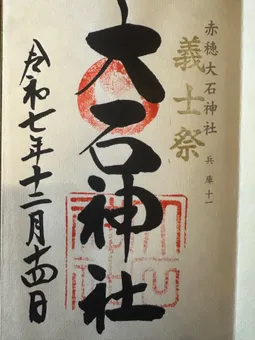 赤穂大石神社 兵庫十一
義士祭
大石神社
令和七年十二月十四日